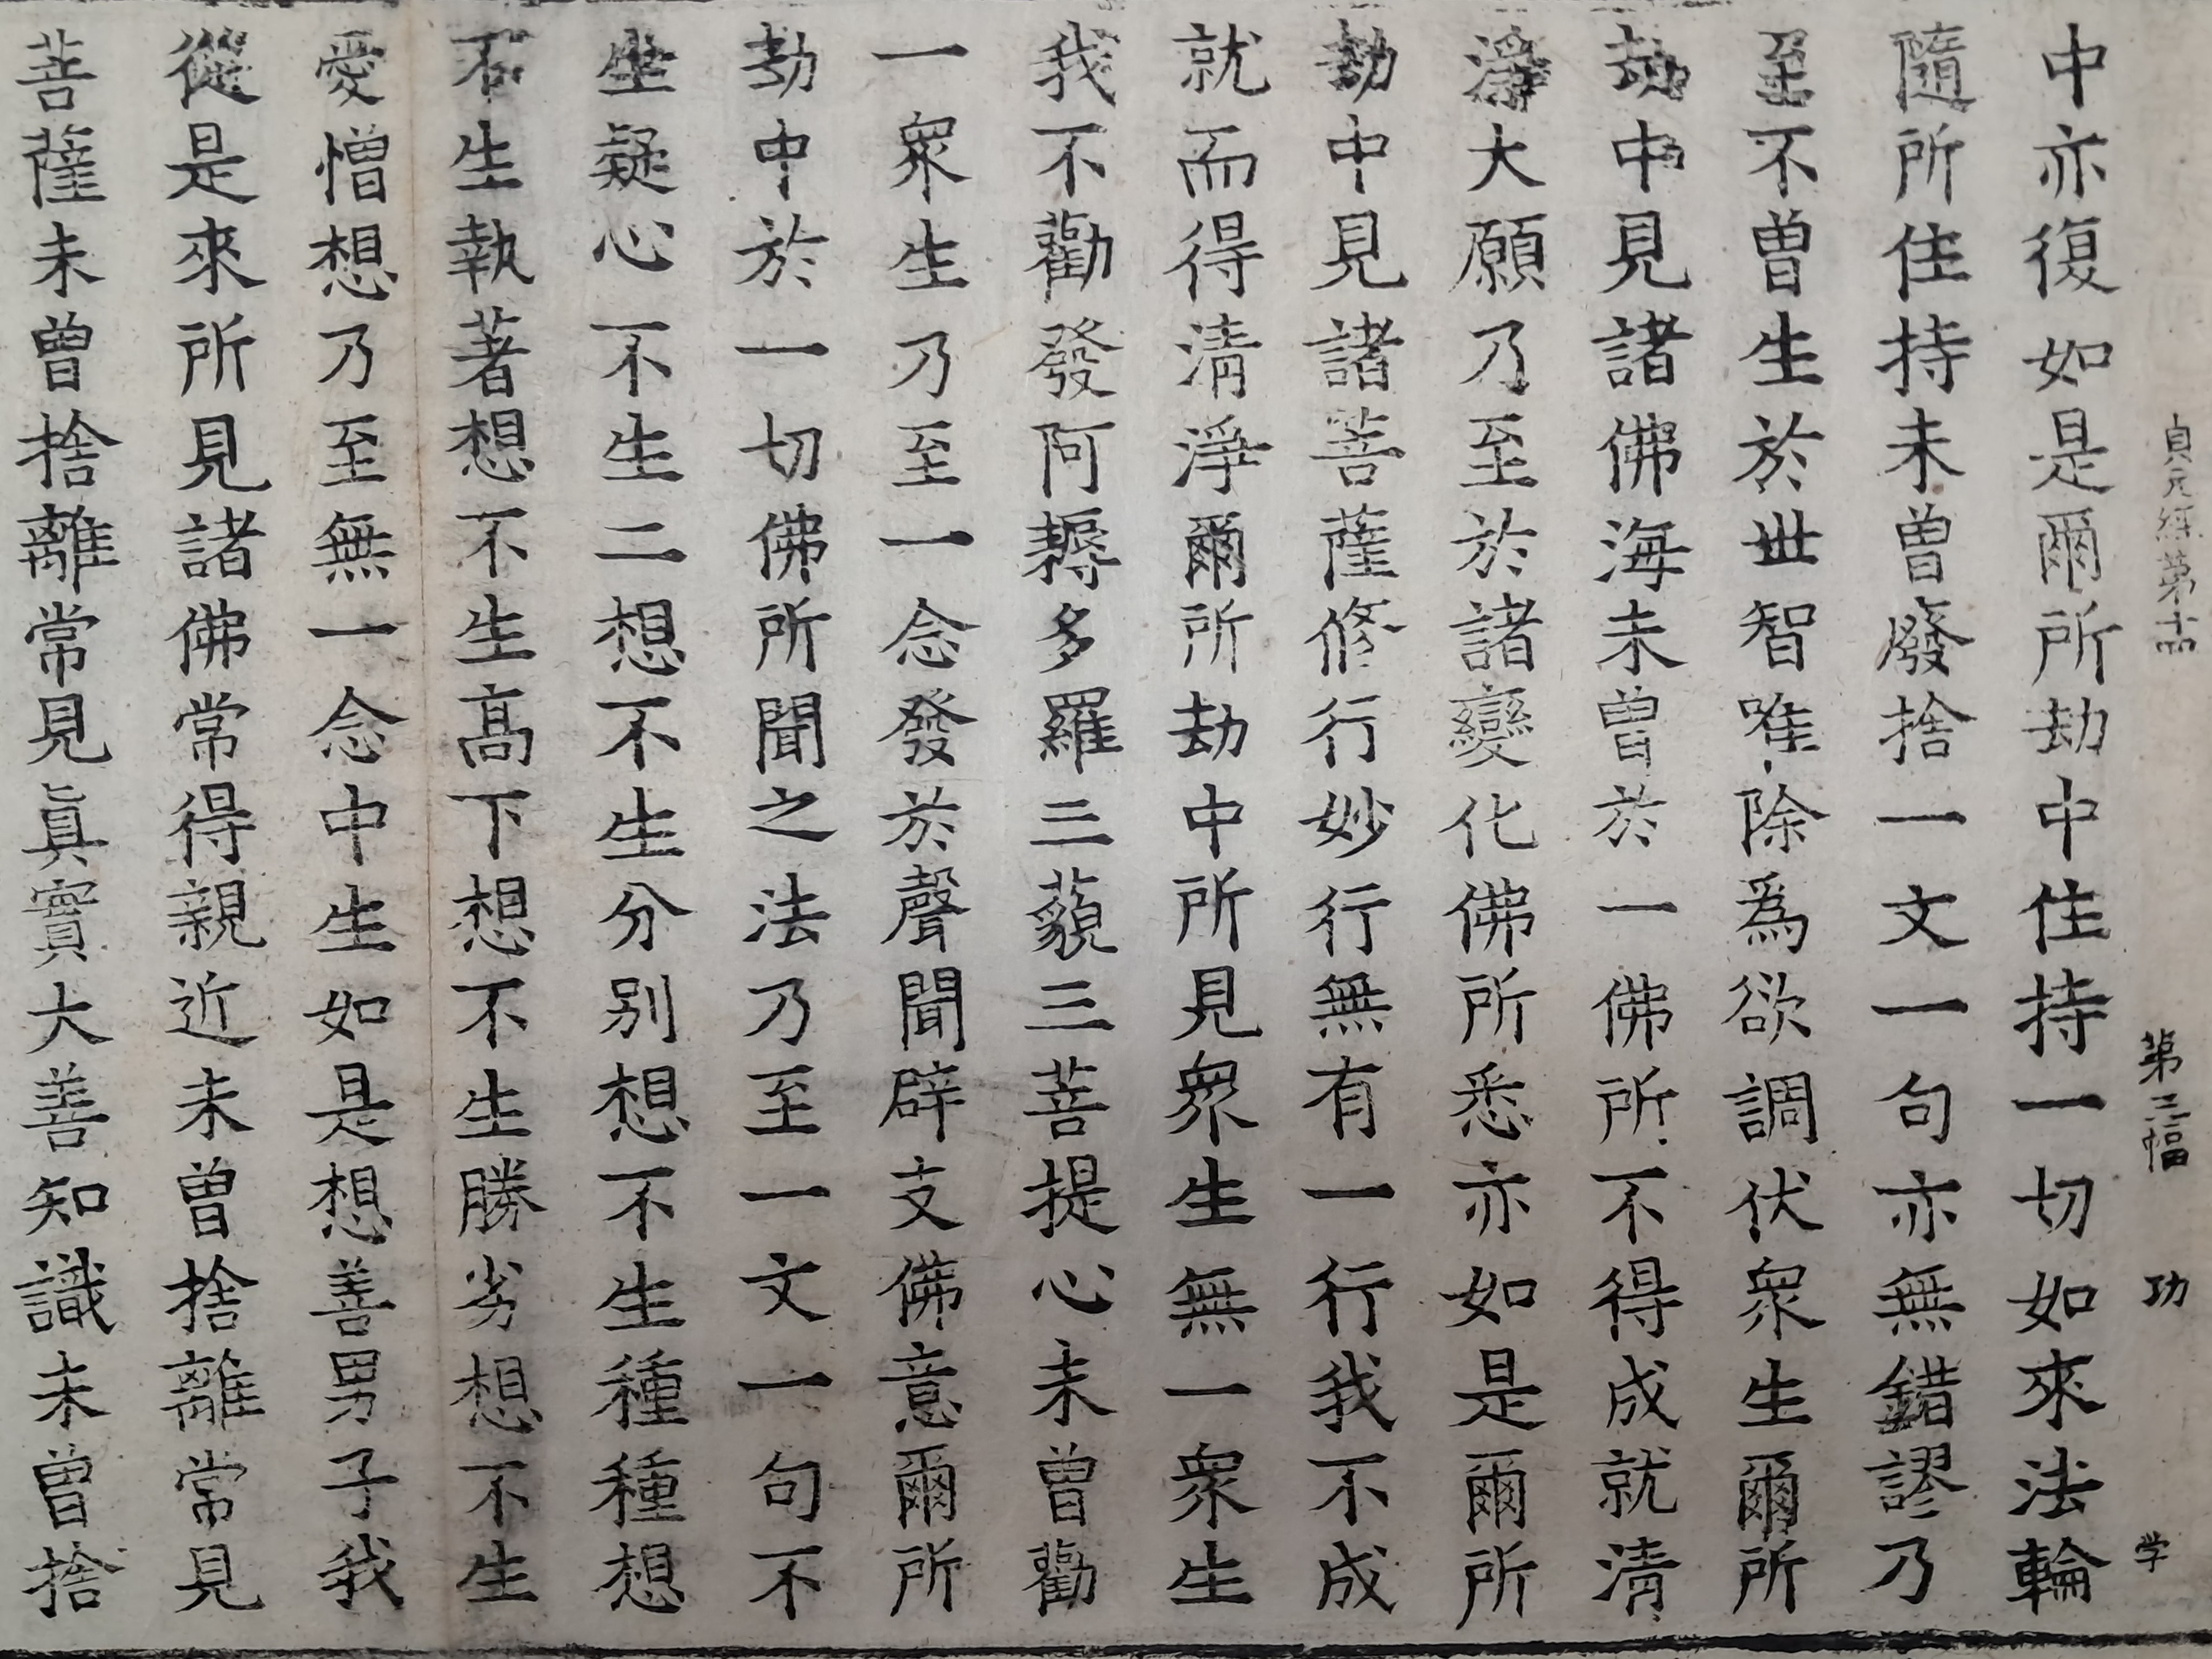 貞元經第十四 第三幅 功 学
中亦復如是爾所劫中住持一切如來法輪
隨所住持未曾廢捨一文一句亦無錯謬乃
至不曾生於世智唯除爲欲調伏衆生爾所
劫中見諸佛海未曾於一佛所不得成就清
淨大願乃至於諸變化佛所悉亦如是爾所
劫中見諸菩薩修行妙行無有一行我不成
就而得清淨爾所劫中所見衆生無一衆生
我不勸發阿耨多羅三藐三菩提心未曾勸
一衆生乃至一念發於聲聞辟支佛意爾所
劫中於一切佛所聞之法乃至一文一句不
生疑心不生二想不生分別想不生種種想
不生執著想不生高下想不生勝劣想不生
愛憎想乃至無一念中生如是想善男子我
從是來所見諸佛常得親近未曾捨離常見
菩薩未曾捨離常見眞實大善知識未曾捨